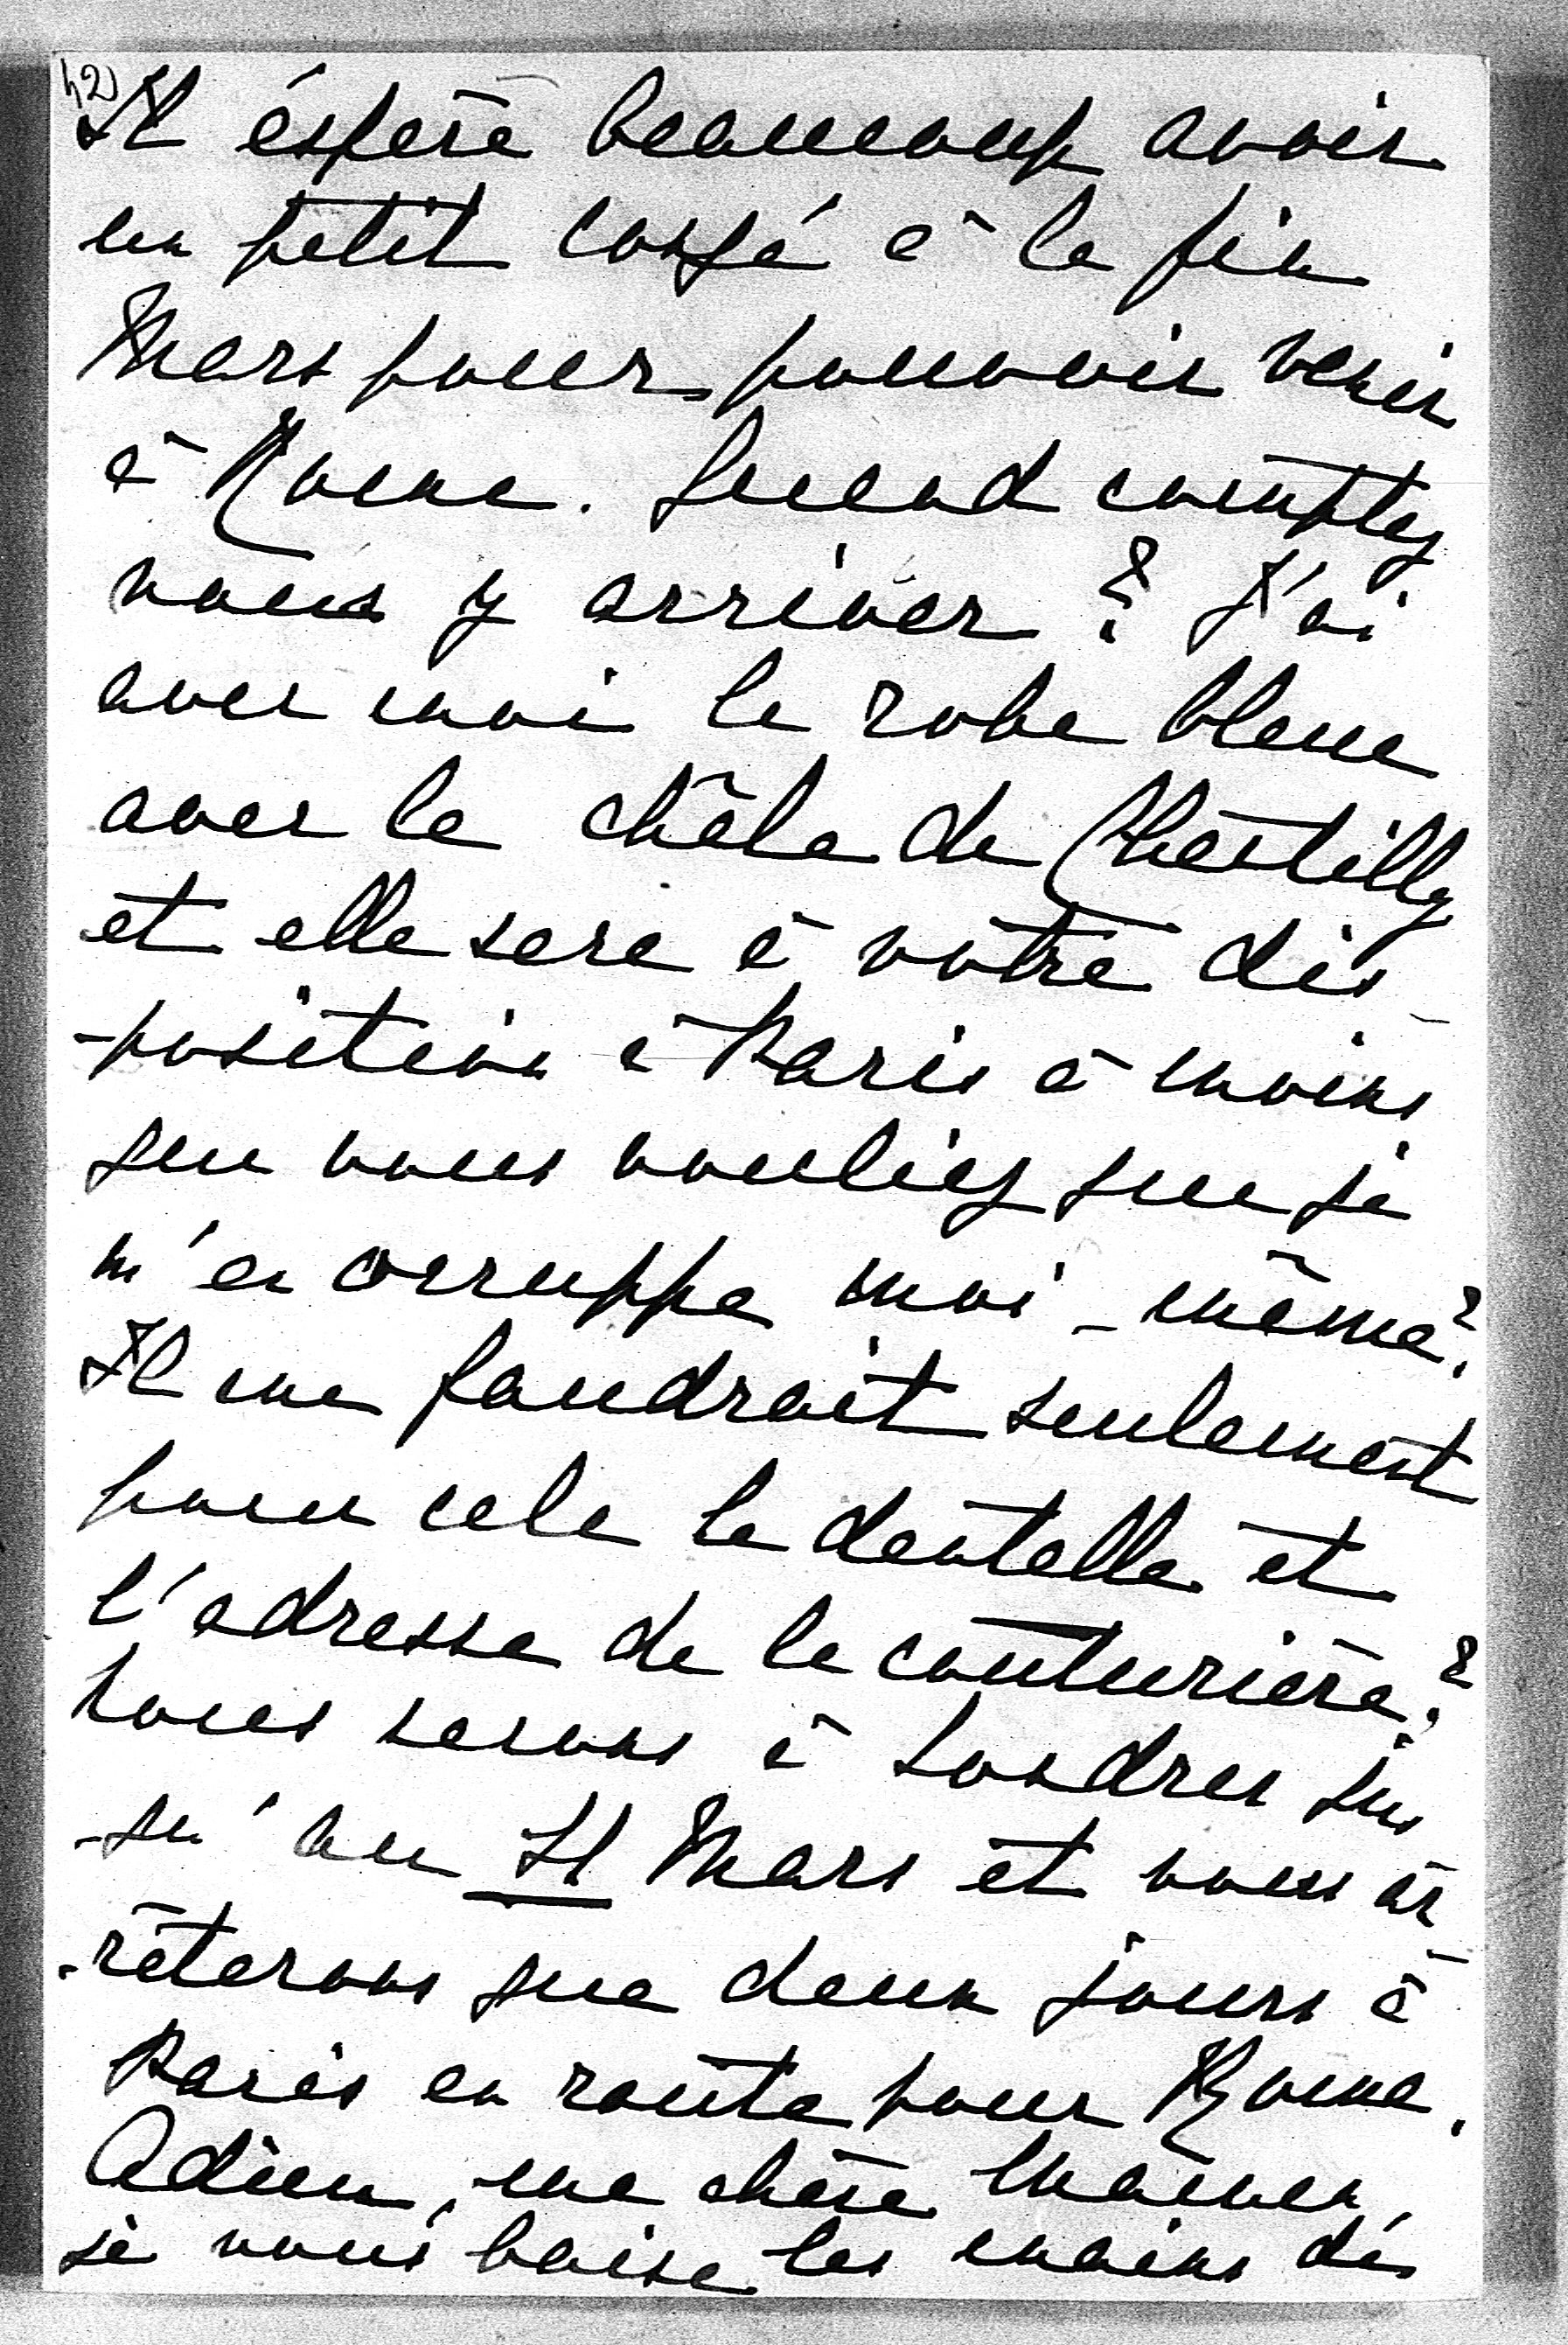 42)
Il éspère beaucoup avoir
un petit congé à la fin
Mars pour pouvoir venir
à Rome. Quand comptez
vous y arriver? J'ai
avec moi la robe bleue
avec le châle de Chantilly
et elle sera à vôtre dis-
-position à Paris à moins
que vous vouliez que je
m'en occuppe moi-même?
Il me faudrait seulement
pour cela la dentelle et
l'adresse de la couturière?
Nous serons à Londres jus
-qu'au Mars et nous ar
-rêterons que deux jours à
Paris en route pour Rome.
Adieu, ma chère Maman,
je vous baise les mains de